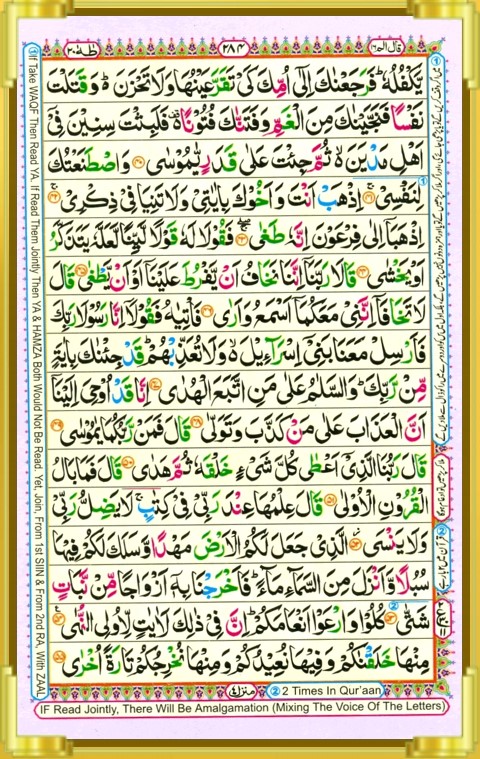 قال الم ١٦
٢٨٤
طٰهٰ ٢٠
يَّكْفُلُهٗ ؕ فَرَجَعْنٰكَ اِلٰۤى اُمِّكَ كَىْ تَقَرَّ عَيْنُهَا وَلَا تَحْزَنَ ؕ۬ وَقَتَلْتَ
نَفْسًا فَنَجَّيْنٰكَ مِنَ الْغَمِّ وَفَتَنّٰكَ فُتُوْنًا ۫۬ فَلَبِثْتَ سِنِيْنَ فِىْۤ
اَهْلِ مَدْيَنَ ۙ۬ ثُمَّ جِئْتَ عَلٰى قَدَرٍ يّٰمُوْسٰى ۟ وَاصْطَنَعْتُكَ
لِنَفْسِىْ ۟ اِذْهَبْ اَنْتَ وَاَخُوْكَ بِاٰيٰتِىْ وَلَا تَنِيَا فِىْ ذِكْرِىْ ۟
اِذْهَبَاۤ اِلٰى فِرْعَوْنَ اِنَّهٗ طَغٰى ۟ فَقُوْلَا لَهٗ قَوْلًا لَّيِّنًا لَّعَلَّهٗ يَتَذَكَّرُ
اَوْ يَخْشٰى ۟ قَالَا رَبَّنَاۤ اِنَّنَا نَخَافُ اَنْ يَّفْرُطَ عَلَيْنَاۤ اَوْ اَنْ يَّطْغٰى ۟ قَالَ
لَا تَخَافَاۤ اِنَّنِىْ مَعَكُمَاۤ اَسْمَعُ وَاَرٰى ۟ فَاْتِيٰهُ فَقُوْلَاۤ اِنَّا رَسُوْلَا رَبِّكَ
فَاَرْسِلْ مَعَنَا بَنِىْۤ اِسْرَآءِيْلَ ۙ۬ وَلَا تُعَذِّبْهُمْ ؕ قَدْ جِئْنٰكَ بِاٰيَةٍ
مِّنْ رَّبِّكَ ؕ وَالسَّلٰمُ عَلٰى مَنِ اتَّبَعَ الْهُدٰى ۟ اِنَّا قَدْ اُوْحِىَ اِلَيْنَاۤ
اَنَّ الْعَذَابَ عَلٰى مَنْ كَذَّبَ وَتَوَلّٰى ۟ قَالَ فَمَنْ رَّبُّكُمَا يٰمُوْسٰى ۟
قَالَ رَبُّنَا الَّذِىْۤ اَعْطٰى كُلَّ شَىْءٍ خَلْقَهٗ ثُمَّ هَدٰى ۟ قَالَ فَمَا بَالُ
الْقُرُوْنِ الْاُوْلٰى ۟ قَالَ عِلْمُهَا عِنْدَ رَبِّىْ فِىْ كِتٰبٍ ۚ لَا يَضِلُّ رَبِّىْ
وَلَا يَنْسَى ۟ الَّذِىْ جَعَلَ لَكُمُ الْاَرْضَ مَهْدًا وَّسَلَكَ لَكُمْ فِيْهَا
سُبُلًا وَّاَنْزَلَ مِنَ السَّمَآءِ مَآءً ؕ فَاَخْرَجْنَا بِهٖۤ اَزْوَاجًا مِّنْ نَّبَاتٍ
شَتّٰى ۟ كُلُوْا وَارْعَوْا اَنْعَامَكُمْ ؕ اِنَّ فِىْ ذٰلِكَ لَاٰيٰتٍ لِّاُولِى النُّهٰى ۟
مِنْهَا خَلَقْنٰكُمْ وَفِيْهَا نُعِيْدُكُمْ وَمِنْهَا نُخْرِجُكُمْ تَارَةً اُخْرٰى ۟
منزل ٤
② 2 Times In Qur'aan
IF Read Jointly, There Will Be Amalgamation (Mixing The Voice Of The Letters)
① If Take WAQF Then Read YA. If Read Them Jointly Then YA & HAMZA Both Would Not Be Read. Yet, Join, From 1st SIIN & From 2nd RA, With ZAAL